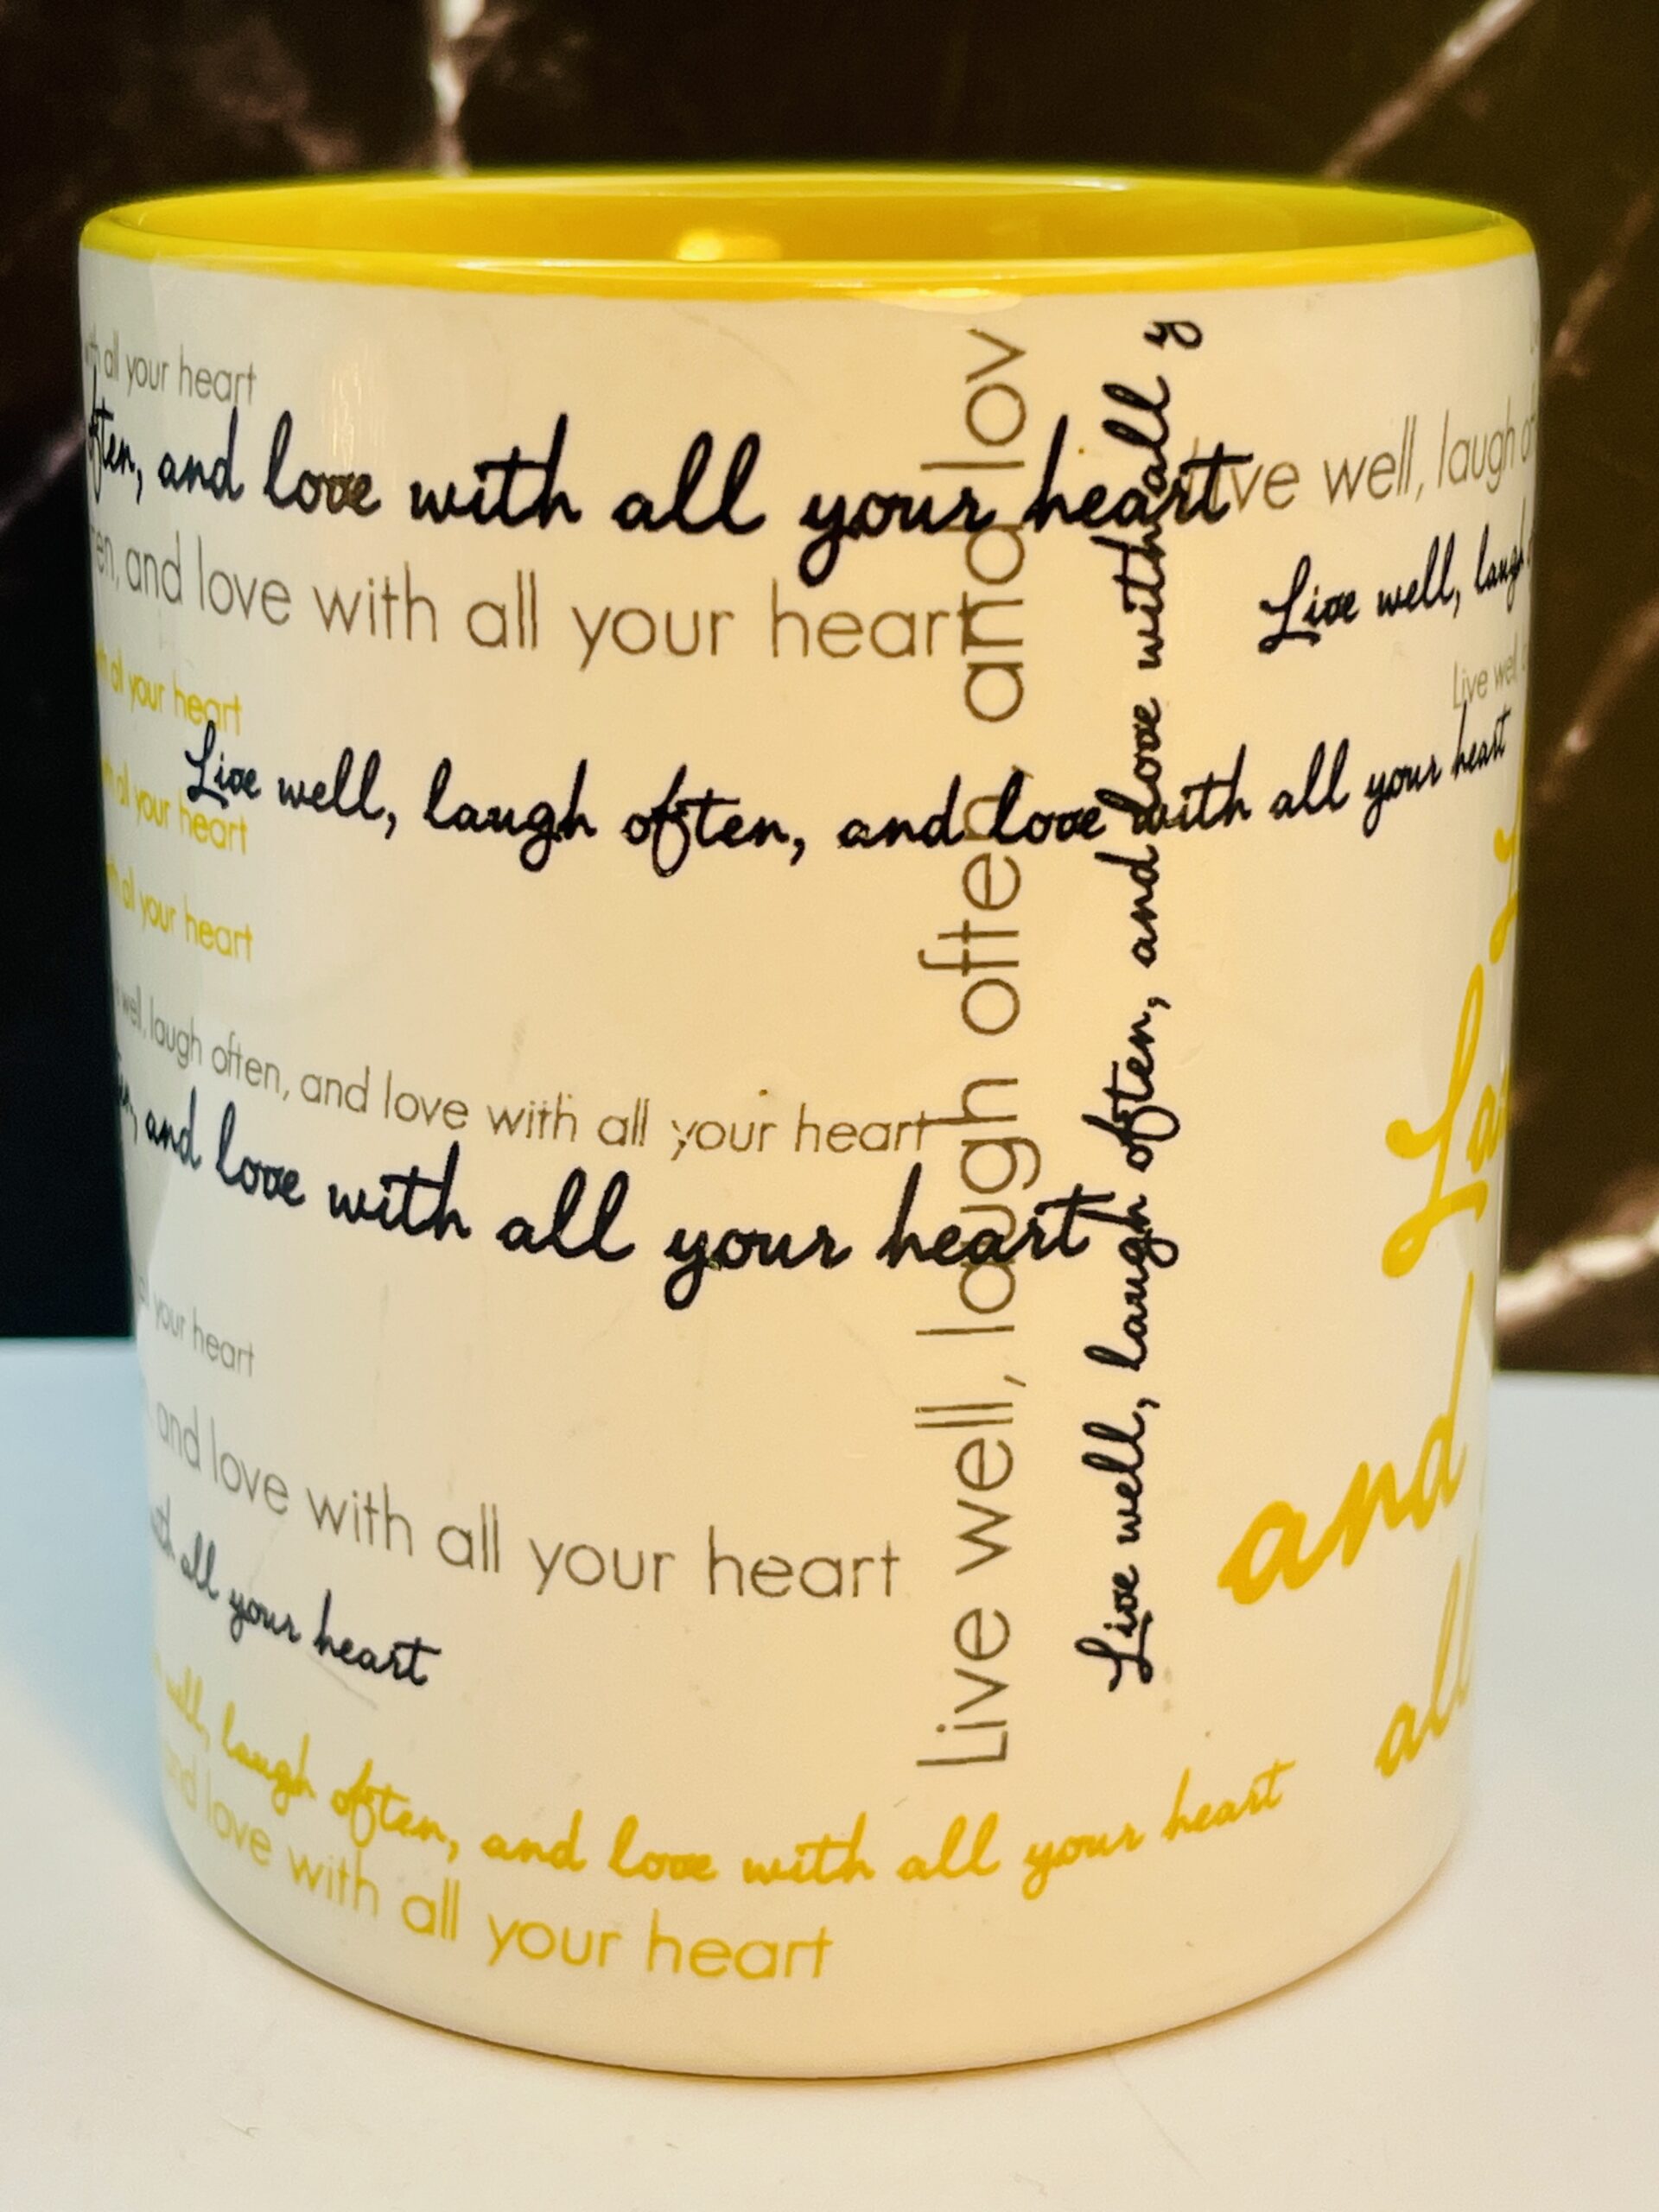 all your heart
and love with all your heart
Live well, laugh
and love with all your heart
Live well, laugh
all your heart
Live well
Live well, laugh often, and love with all your heart
all your heart
all your heart
well, laugh often, and love with all your heart
and love with all your heart
your heart
and love with all your heart
all your heart
well, laugh often, and love with all your heart
love with all your heart
Live well, laugh often, and lov
Live well, laugh often, and love with all y
and
all